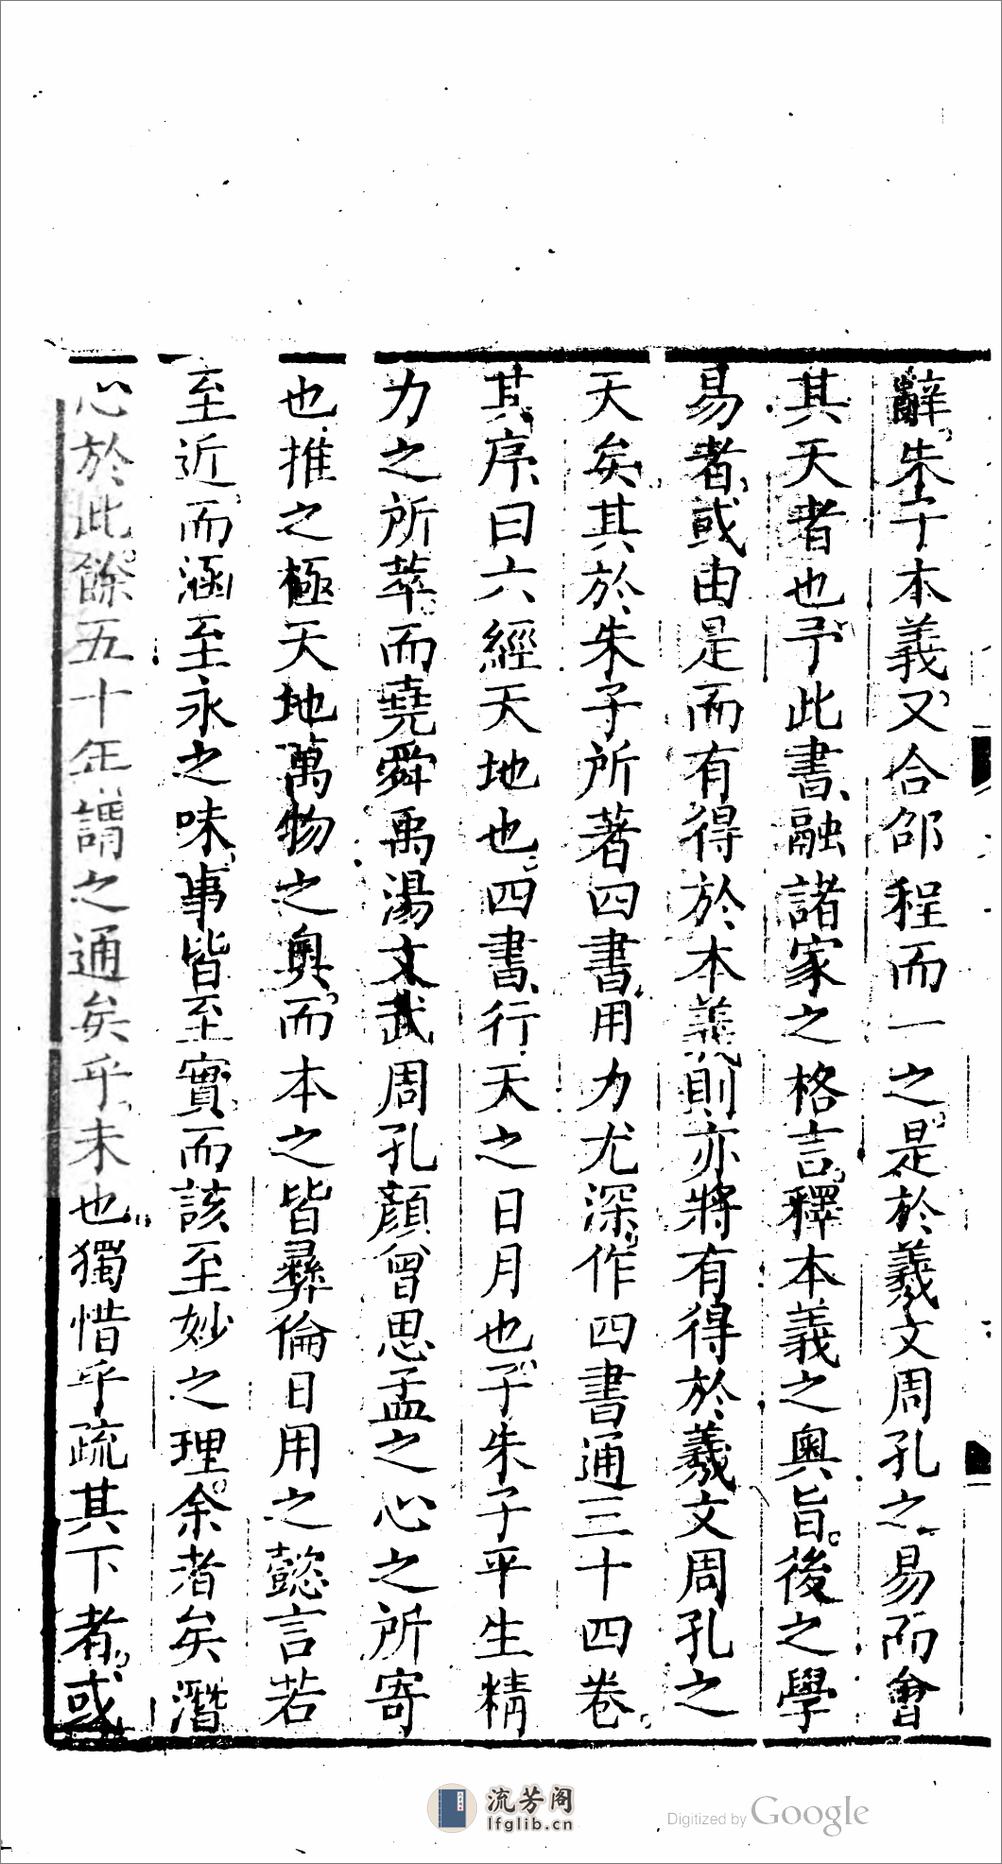 辭朱子本義又合邵程而一之是於羲文周孔之易而會
其天者也予此書融諸家之格言釋本義之奧旨後之學
易者或由是而有得於本義則亦將有得於羲文周孔之
天矣其於朱子所著四書用力尤深作四書通三十四卷
其序曰六經天地也四書行天之日月也子朱子平生精
力之所萃而堯舜禹湯文武周孔顏曾思孟之心之所寄
也推之極天地萬物之奧而本之皆彝倫日用之懿言若
至近而涵至永之味事皆至實而該至妙之理余者矣潛
心於此餘五十年謂之通矣乎未也獨惜乎疏其下者或
流芳阁
lfglib.cn
Digitized by Google